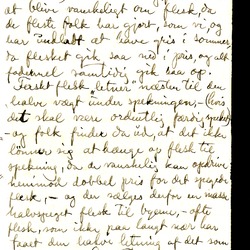 at blive vanskeligt om flesk, da
de fleste folk har gjort som vi, og
har undladt at have gris i sommer,
da flesket gik saa ned i pris, og alt
fodermel samtidig gik saa op.
Færskt flesk "letner" næsten til den
halve vægt under spekningen — (hvis
det skal være ordentlig færdigspeket)
og folk finder da ud, at det ikke
lønner sig at hænge op flesk til
spekning, da de vanskelig kan opdrive
henimod dobbel pris for det spegede
flesk, — og der sælges derfor en masse
halvspeget flesk til byerne, — ofte
flesk, som ikke paa langt nær har
faat den halve letning og det som